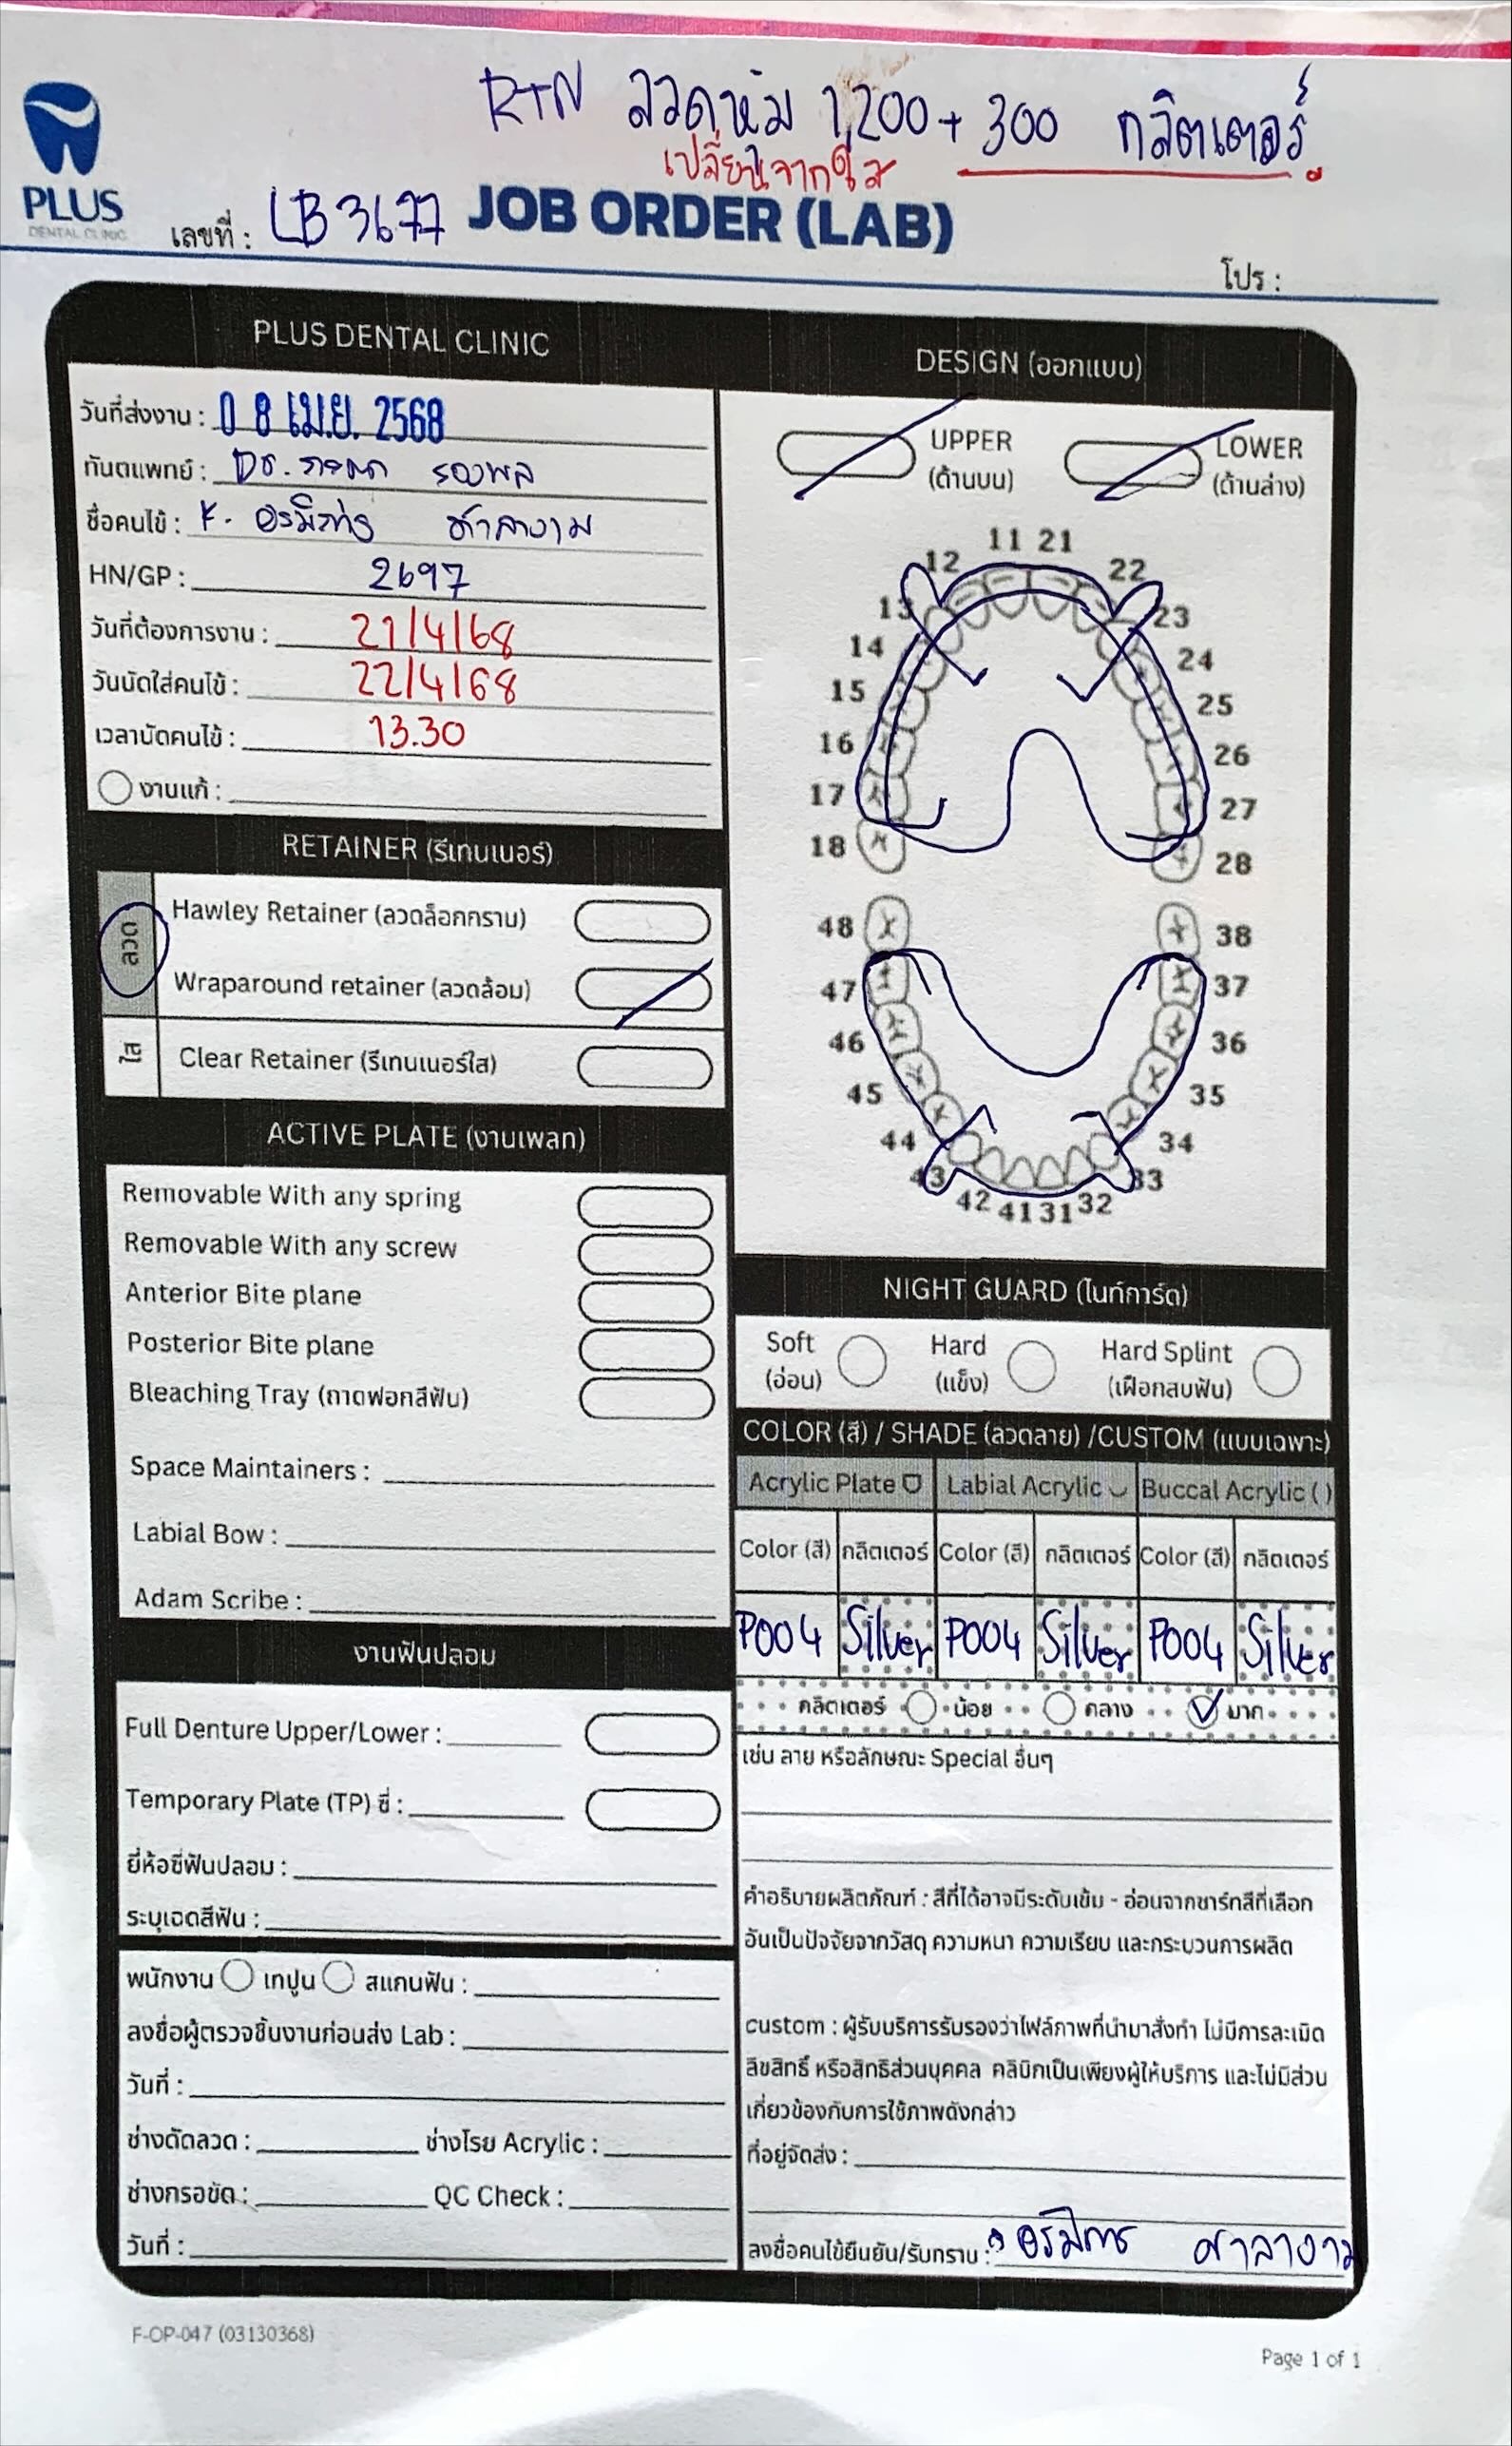 RTN ลวดหุ้ม 1,200 + 300 กลิตเตอร์
เปลี่ยนจากใส
PLUS
DENTAL CLINIC
เลขที่ : LB3677 JOB ORDER (LAB)
โปร :
PLUS DENTAL CLINIC
วันที่ส่งงาน : 08 เม.ย. 2568
ทันตแพทย์ :
ชื่อคนไข้ : K.
HN/GP : 2697
วันที่ต้องการงาน : 21/4/68
วันนัดใส่คนไข้ : 22/4/68
เวลานัดคนไข้ : 13.30
งานแก้ :
RETAINER (รีเทนเนอร์)
ลวด
Hawley Retainer (ลวดล็อกกราม)
Wraparound retainer (ลวดล้อม)
ใส
Clear Retainer (รีเทนเนอร์ใส)
ACTIVE PLATE (งานเพลท)
Removable With any spring
Removable With any screw
Anterior Bite plane
Posterior Bite plane
Bleaching Tray (ถาดฟอกสีฟัน)
Space Maintainers :
Labial Bow :
Adam Scribe :
งานฟันปลอม
Full Denture Upper/Lower :
Temporary Plate (TP) ซี่ :
ยี่ห้อซี่ฟันปลอม :
ระบุเฉดสีฟัน :
พนักงาน เทปูน สแกนฟัน :
ลงชื่อผู้ตรวจชิ้นงานก่อนส่ง Lab :
วันที่ :
ช่างดัดลวด : ช่างโรย Acrylic :
ช่างกรอขัด : QC Check :
วันที่ :
DESIGN (ออกแบบ)
UPPER LOWER
(ด้านบน) (ด้านล่าง)
11 21
12 22
13 23
14 24
15 25
16 26
17 27
18 28
48 38
47 37
46 36
45 35
44 34
43 33
42 41 31 32
NIGHT GUARD (ไนท์การ์ด)
Soft Hard Hard Splint
(อ่อน) (แข็ง) (เฝือกสบฟัน)
COLOR (สี) / SHADE (ลวดลาย) /CUSTOM (แบบเฉพาะ)
Acrylic Plate Labial Acrylic Buccal Acrylic ( )
Color (สี) กลิตเตอร์ Color (สี) กลิตเตอร์ Color (สี) กลิตเตอร์
P004 Silver P004 Silver P004 Silver
กลิตเตอร์ น้อย กลาง มาก
เช่น ลาย หรือลักษณะ Special อื่นๆ
คำอธิบายผลิตภัณฑ์ : สีที่ได้อาจมีระดับเข้ม - อ่อนจากชาร์ทสีที่เลือก
อันเป็นปัจจัยจากวัสดุ ความหนา ความเรียบ และกระบวนการผลิต
custom : ผู้รับบริการรับรองว่าไฟล์ภาพที่นำมาสั่งทำ ไม่มีการละเมิด
ลิขสิทธิ์ หรือสิทธิส่วนบุคคล คลินิกเป็นเพียงผู้ให้บริการ และไม่มีส่วน
เกี่ยวข้องกับการใช้ภาพดังกล่าว
ที่อยู่จัดส่ง :
ลงชื่อคนไข้ยืนยัน/รับทราบ :
F-OP-047 (03130368)
Page 1 of 1